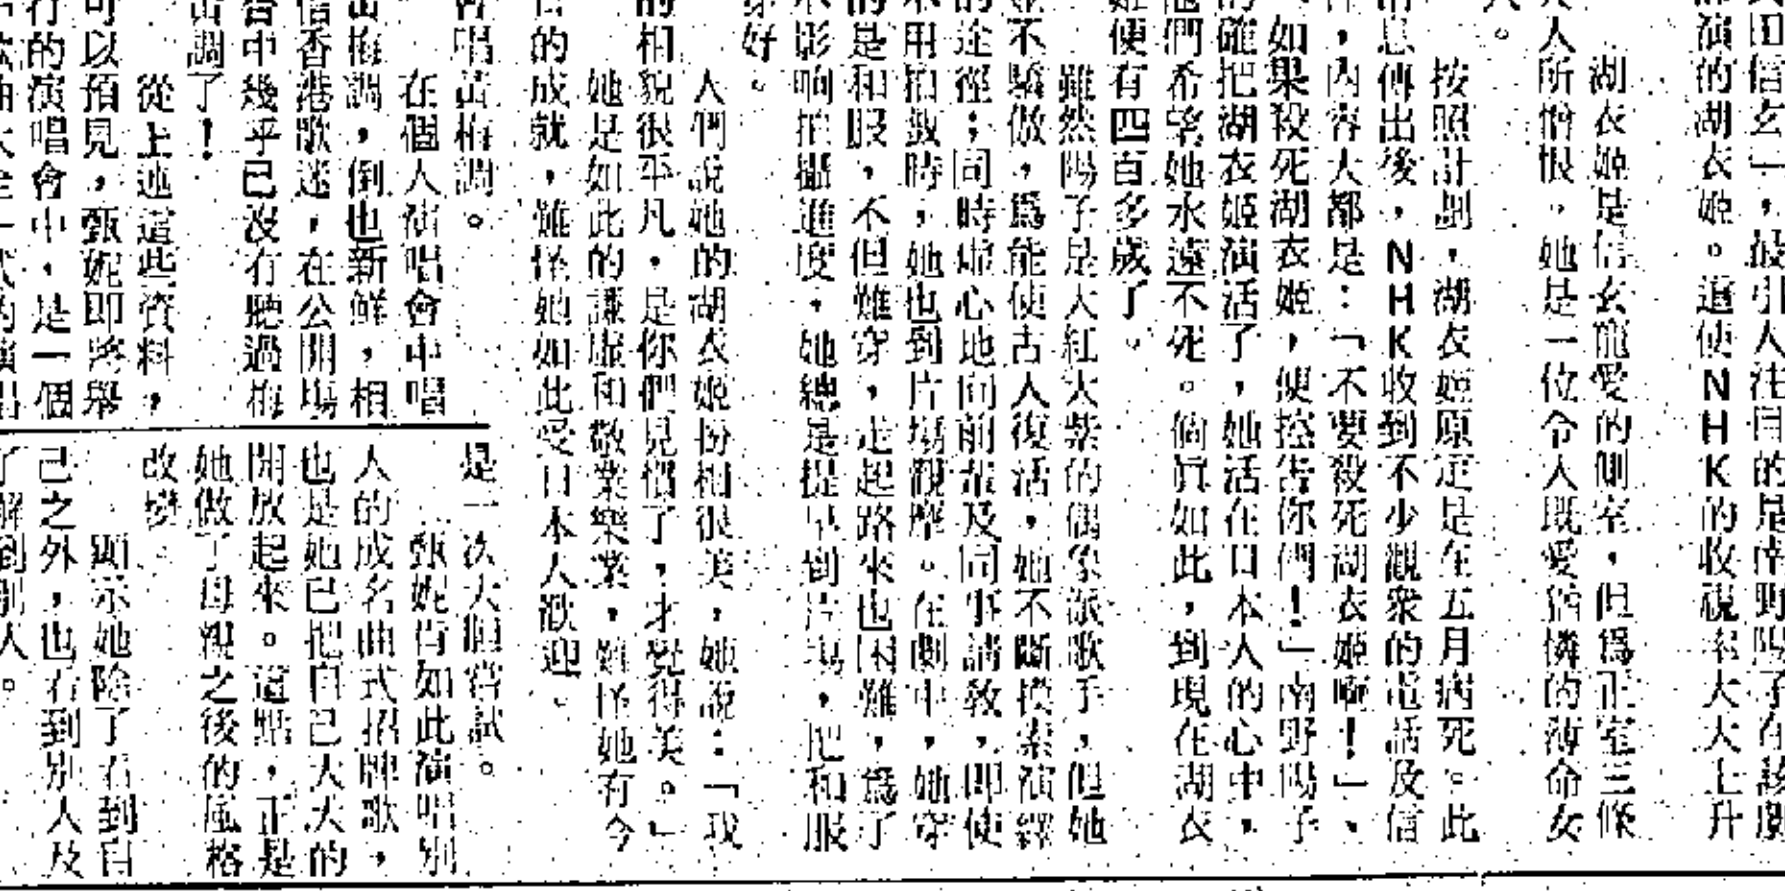 田信玄」，最引人注目的是南野陽子在該劇
演的湖衣姬。這使NHK的收視率大大上升
人。
湖衣姬是信玄寵愛的側室，但爲正室三條
人所憎恨。她是一位令人既愛猶憐的薄命女
按照計劃，湖衣姬原定是在五月病死。此
消息傳出後，NHK收到不少觀衆的電話及信
件，內容大都是：「不要殺死湖衣姬啊！」、
如果殺死湖衣姬，便控告你們！」南野陽子
的確把湖衣姬演活了，她活在日本人的心中，
他們希望她永遠不死。倘眞如此，到現在湖衣
姬便有四百多歲了。
雖然陽子是大紅大紫的偶象派歌手，但她
並不驕傲，爲能使古人復活，她不斷摸索演繹
的途徑；同時虛心地向前輩及同事請教，即使
不用拍戲時，她也到片場觀摩。在劇中，她穿
的是和服，不但難穿，走起路來也困難，爲了
不影响拍攝進度，她總是提早到片場，把和服
穿好。
人們說她的湖衣姬扮相很美，她說：「我
的相貌很平凡，是你們見慣了，才覺得美。」
她是如此的謙虛和敬業樂業，難怪她有今
日的成就，難怪她如此受日本人歡迎。
會唱黃梅調。
在個人演唱會中唱
黃梅調，倒也新鮮，相
信香港歌迷，在公開場
合中幾乎已沒有聽過梅
黃調了！
從上述這些資料，
可以預見，甄妮即將舉
行的演唱會中，是一個
是一次大胆嘗試。
甄妮肯如此演唱別
人的成名曲式招牌歌，
也是她已把自己大大的
開放起來。這點，正是
她做了母親之後的風格
改變。
顯示她除了看到自
己之外，也看到別人及
了解到別人。